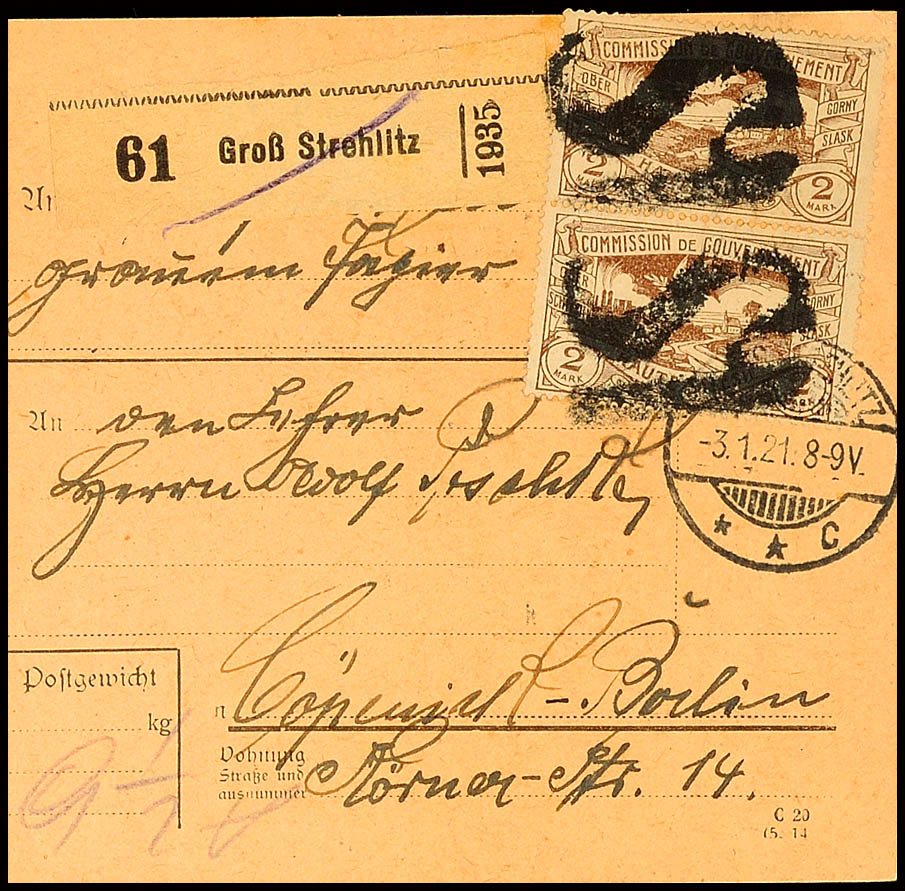 COMMISSION DE GOUVERNEMENT
OBER
GORNY
SLASK
2 MARK
2 MARK
61 Groß Strehlitz 1935
COMMISSION DE GOUVERNEMENT
GORNY
SLASK
2 MARK
grauem Papier
An den Lehrer
Herrn Adolf
-3.1.21. 8-9V.
* * C
Cöpenick - Berlin
Postgewicht
kg
Wohnung
Straße und
ausnummer
Körner-Str. 14.
C 20
(5. 14